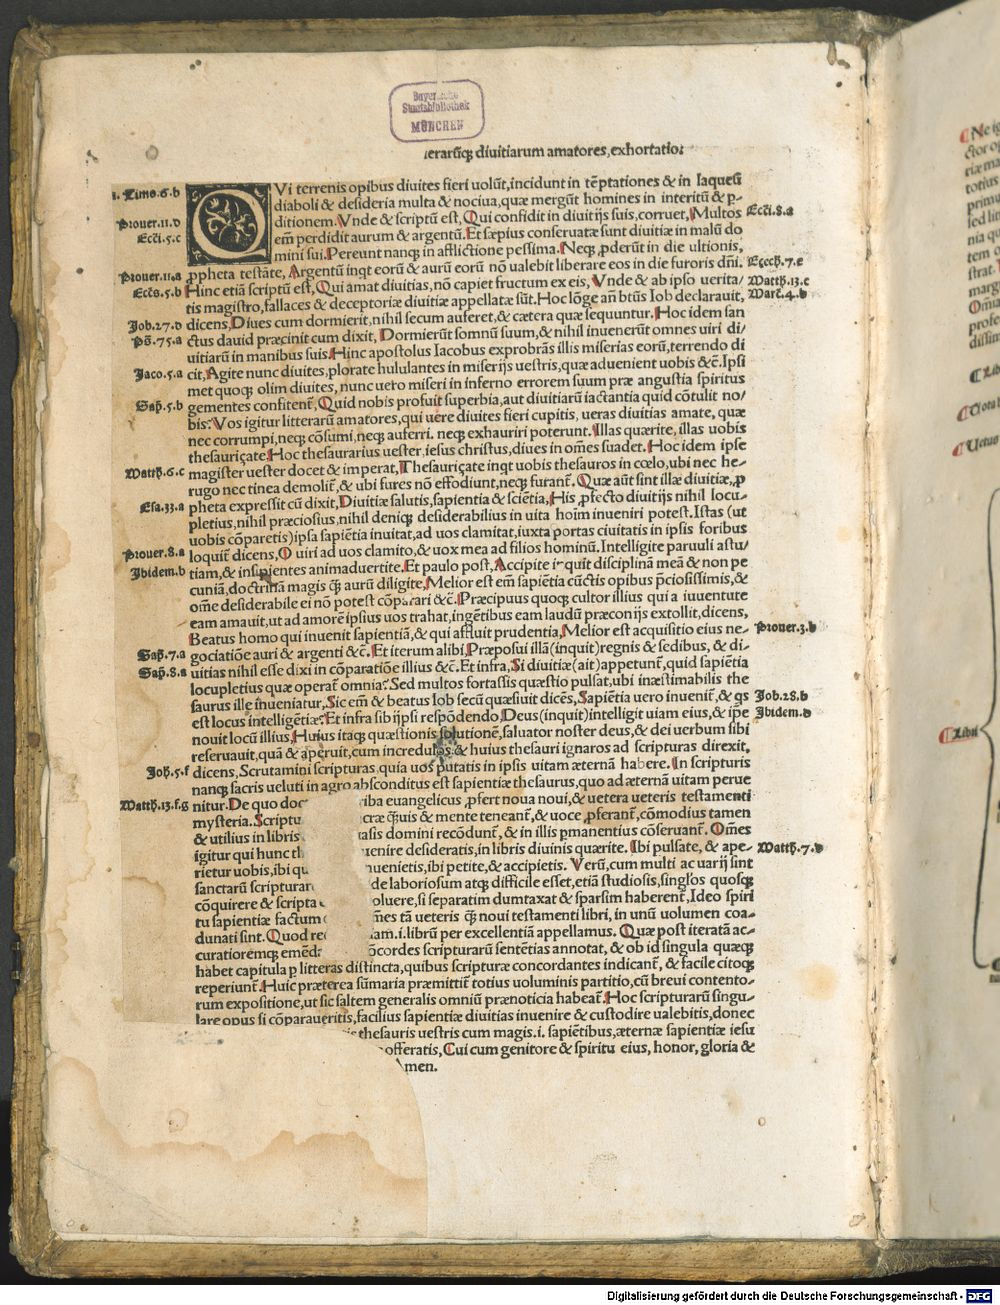 Bayerische
Staatsbibliothek
MÜNCHEN
erarūq; diuitiarum amatores, exhortatio:
QVi terrenis opibus diuites fieri uolūt, incidunt in tētationes & in laqueū
1. Timo. 6. b
diaboli & desideria multa & nociua, quæ mergūt homines in interitū & p̱-
Prouer. 11. d
ditionem. Vnde & scriptū est, Qui confidit in diuitijs suis, corruet, Multos
Eccī. 8. a
Eccī. 5. c
em̄ perdidit aurum & argentū. Et sæpius conseruatæ sunt diuitiæ in malū do
mini sui. Pereunt nanq; in afflictione pessima. Neq; ꝓderūt in die ultionis,
Prouer. 11. a
ꝓpheta testāte, Argentū inqt eorū & aurū eorū nō ualebit liberare eos in die furoris dn̄i.
Eʒech. 7. e
Eccs. 5. b
Hinc etiā scriptū est, Qui amat diuitias, nō capiet fructum ex eis, Vnde & ab ipso uerita/
Matth. 13. c
tis magistro, fallaces & deceptoriæ diuitiæ appellatæ sūt. Hoc lōge an̄ btūs Iob declarauit,
Marc. 4. b
Job. 27. d
dicens, Diues cum dormierit, nihil secum auferet, & cætera quæ sequuntur. Hoc idem san
Ps̄. 75. a
ctus dauid præcinit cum dixit, Dormierūt somnū suum, & nihil inuenerūt omnes uiri di/
uitiarū in manibus suis. Hinc apostolus Iacobus exprobrās illis miserias eorū, terrendo di
Jaco. 5. a
cit, Agite nunc diuites, plorate hululantes in miserijs uestris, quæ aduenient uobis &c̄. Ipsi
met quoq; olim diuites, nunc uero miseri in inferno errorem suum præ angustia spiritus
Sap̄. 5. b
gementes confitent̄, Quid nobis profuit superbia, aut diuitiarū iactantia quid cōtulit no/
bis? Vos igitur litterarū amatores, qui uere diuites fieri cupitis, ueras diuitias amate, quæ
nec corrumpi, neq; cōsumi, neq; auferri. neq; exhauriri poterunt. Illas quærite, illas uobis
thesauriçate. Hoc thesaurarius uester, iesus christus, diues in om̄es suadet. Hoc idem ipse
Matth. 6. c
magister uester docet & imperat, Thesauriçate inqt uobis thesauros in cœlo, ubi nec he-
rugo nec tinea demolit̄, & ubi fures nō effodiunt, neq; furant̄. Quæ aūt sint illæ diuitiæ, ꝓ
Esa. 33. a
pheta expressit cū dixit, Diuitiæ salutis, sapientia & sciētia, His ꝓfecto diuitijs nihil locu-
pletius, nihil præciosius, nihil deniq; desiderabilius in uita hoīm inueniri potest. Istas (ut
uobis cōparetis) ipsa sapiētia inuitat, ad uos clamitat, iuxta portas ciuitatis in ipsis foribus
Prouer. 8. a
loquit̄ dicens, O uiri ad uos clamito, & uox mea ad filios hominū. Intelligite paruuli astu/
Ibidem. b
tiam, & insipientes animaduertite. Et paulo post, Accipite inquit disciplinā meā & non pe
cuniā, doctrinā magis q̄; aurū diligite, Melior est em̄ sapiētia cūctis opibus p̄ciosissimis, &
om̄e desiderabile ei nō potest cōparari &c̄. Præcipuus quoq; cultor illius qui a iuuentute
eam amauit, ut ad amorē ipsius uos trahat, ingētibus eam laudū præconijs extollit, dicens,
Beatus homo qui inuenit sapientiā, & qui affluit prudentia, Melior est acquisitio eius ne-
Prouer. 3. b
Sap̄. 7. a
gociatiōe auri & argenti &c̄. Et iterum alibi, Præposui illā (inquit) regnis & sedibus, & di-
Sap̄. 8. a
uitias nihil esse dixi in cōparatiōe illius &c̄. Et infra, Si diuitiæ (ait) appetunt̄, quid sapiētia
locupletius quæ operat̄ omnia? Sed multos fortassis quæstio pulsat, ubi inæstimabilis the
saurus ille inueniatur, Sic em̄ & beatus Iob secū quæsiuit dicēs, Sapiētia uero inuenit̄, & qs
Job. 28. b
est locus intelligētiæ? Et infra sibijpsi respōdendo, Deus (inquit) intelligit uiam eius, & ip̄e
Ibidem. d
nouit locū illius. Huius itaq; quæstionis solutionē, saluator noster deus, & dei uerbum sibi
reseruauit, quā & aperuit, cum incredulos & huius thesauri ignaros ad scripturas direxit,
Joh. 5. f
dicens, Scrutamini scripturas, quia uos putatis in ipsis uitam æternā habere. In scripturis
nanq; sacris ueluti in agro absconditus est sapientiæ thesaurus, quo ad æternā uitam perue
Matth. 13. f. g
nitur. De quo doc riba euangelicus ꝓfert noua noui, & uetera ueteris testamenti
mysteria. Scriptu cræ q̄uis & mente teneant̄, & uoce ꝓferant̄, cōmodius tamen
& utilius in libris asis domini recōdunt̄, & in illis p̱manentius cōseruant̄. Om̄es
igitur qui hunc th uenire desideratis, in libris diuinis quærite. Ibi pulsate, & ape-
Matth. 7. b
rietur uobis, ibi qu uenietis, ibi petite, & accipietis. Verū, cum multi ac uarij sint
sanctarū scripturar de laboriosum atq; difficile esset, etiā studiosis, singlos quosq;
cōquirere & scripta oluere, si separatim dumtaxat & sparsim haberent̄, Ideo spiri
tu sapientiæ factum nes tā ueteris q̄; noui testamenti libri, in unū uolumen coa-
dunati sint. Quod re am. i. librū per excellentiā appellamus. Quæ post iteratā ac-
curatioremq; emēda ōcordes scripturarū sentētias annotat, & ob id singula quæq;
habet capitula p̱ litteras distincta, quibus scripturæ concordantes indicant̄, & facile citoq;
reperiunt̄. Huic præterea sūmaria præmittit̄ totius uoluminis partitio, cū breui contento-
rum expositione, ut sic saltem generalis omniū prænoticia habeat̄. Hoc scripturarū singu-
lare opus si cōparaueritis, facilius sapientiæ diuitias inuenire & custodire ualebitis, donec
thesauris uestris cum magis. i. sapiētibus, æternæ sapientiæ iesu
offeratis, Cui cum genitore & spiritu eius, honor, gloria &
Amen.
Libri
Digitalisierung gefördert durch die Deutsche Forschungsgemeinschaft - DFG